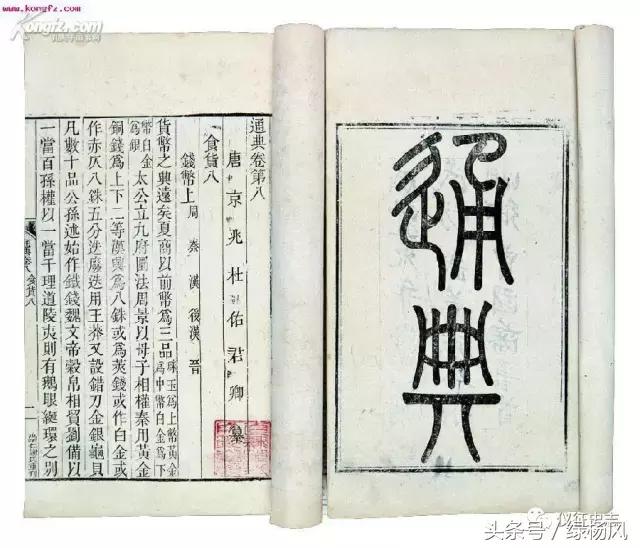 www.kongfz.com
Kongfz.com
通典
通典卷第八
唐京兆杜佑君卿纂
食貨八
錢幣上 周 秦 漢 後漢 晉
貨幣之興遠矣夏商以前幣爲三品珠玉爲上幣黃金爲中幣白金爲下
幣白金爲銀太公立九府圜法周景以母子相權秦用黃金
銅錢爲上下二等漢興爲八銖或爲莢錢或作白金或
作赤仄八銖五分迭廢迭用王莽又設錯刀金銀龜貝
凡數十品公孫述始作鐵錢魏文帝穀帛相貿劉備以
一當百孫權以一當千理道陵夷則有鵝眼綖環之別
食貨八
一
仪征史志
头条号/绿杨风